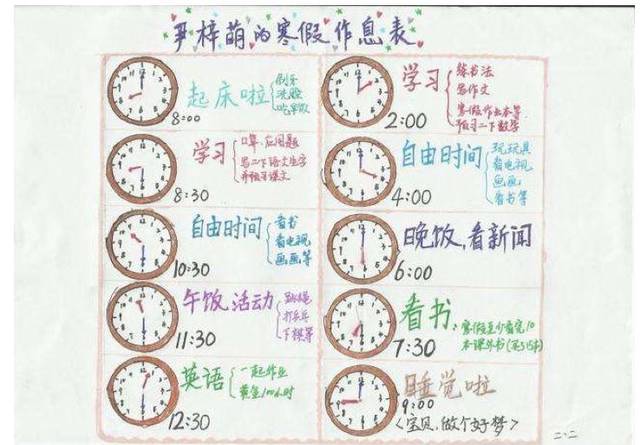 尹梓萌的寒假作息表
起床啦
刷牙
洗脸
吃早饭
8:00
学习
口算、应用题
写二下语文生字
并预习课文
8:30
自由时间
看书
看电视
画画等
10:30
午饭,活动
跳绳
打乒乓
下棋等
11:30
英语
一起作业
12:30
学习
练书法
写作文
寒假作业本等
预习二下数学
2:00
自由时间
玩玩具
看电视
画画
看书等
4:00
晚饭,看新闻
6:00
看书:
寒假至少看完10
本课外书
7:30
睡觉啦
9:00
<宝贝,做个好梦>
二、二